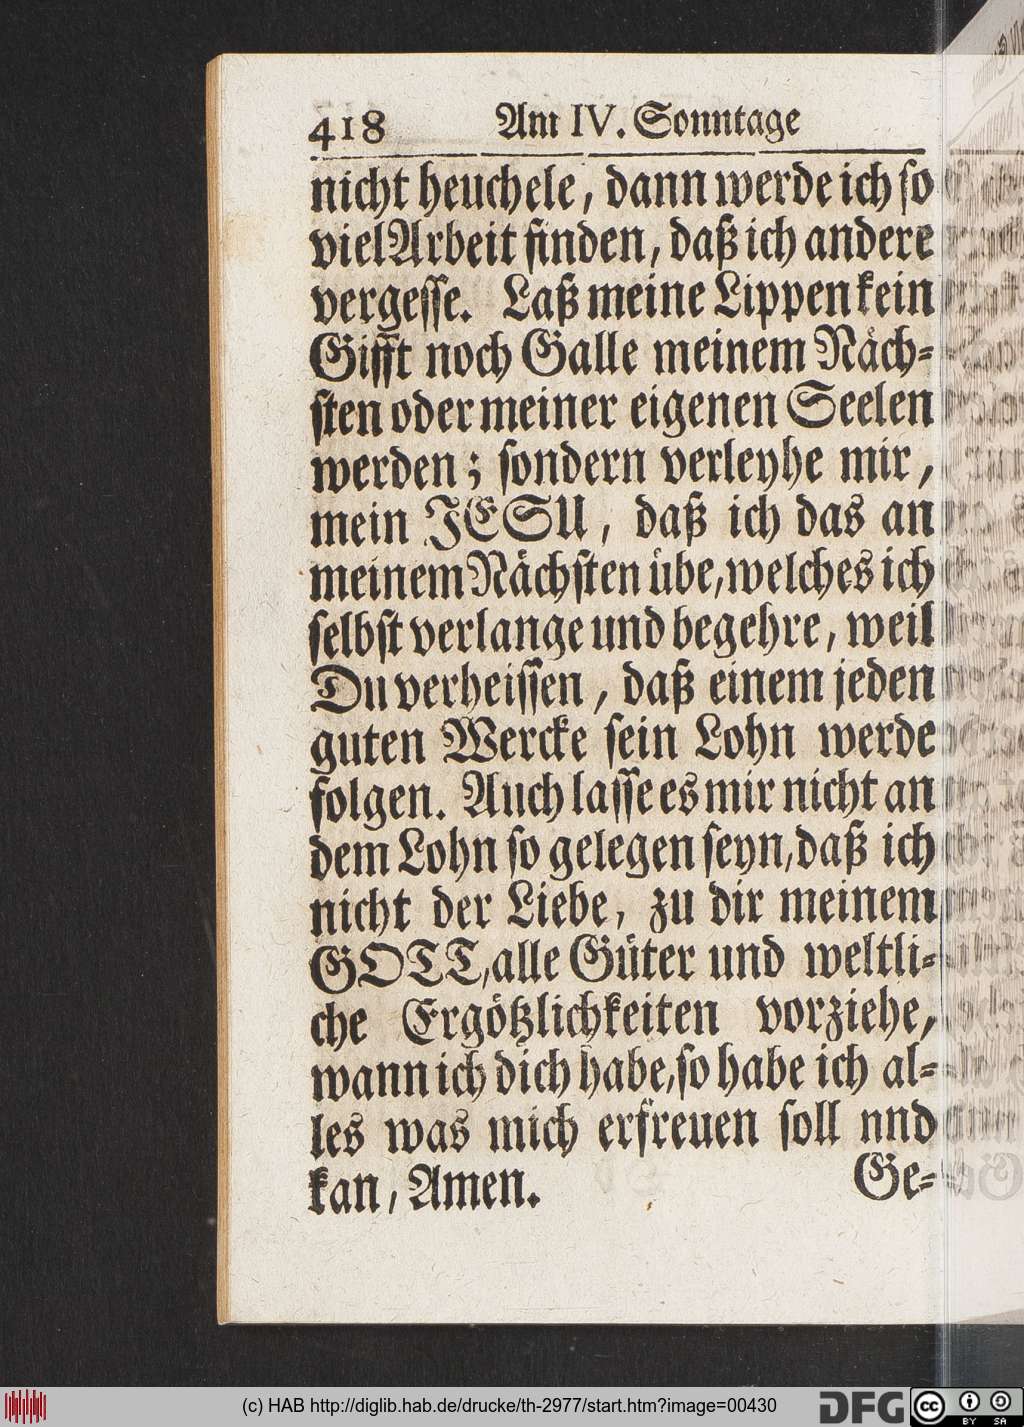 418 Am IV. Sonntage
nicht heuchele, dann werde ich so
viel Arbeit finden, daß ich andere
vergesse. Laß meine Lippen kein
Gifft noch Galle meinem Näch-
sten oder meiner eigenen Seelen
werden; sondern verleyhe mir,
mein JESU, daß ich das an
meinem Nächsten übe, welches ich
selbst verlange und begehre, weil
Du verheissen, daß einem jeden
guten Wercke sein Lohn werde
folgen. Auch lasse es mir nicht an
dem Lohn so gelegen seyn, daß ich
nicht der Liebe, zu dir meinem
GOTT, alle Güter und weltli-
che Ergötzlichkeiten vorziehe,
wann ich dich habe, so habe ich al-
les was mich erfreuen soll nnd
kan, Amen. Ge-
(c) HAB http://diglib.hab.de/drucke/th-2977/start.htm?image=00430
DFG
cc BY SA